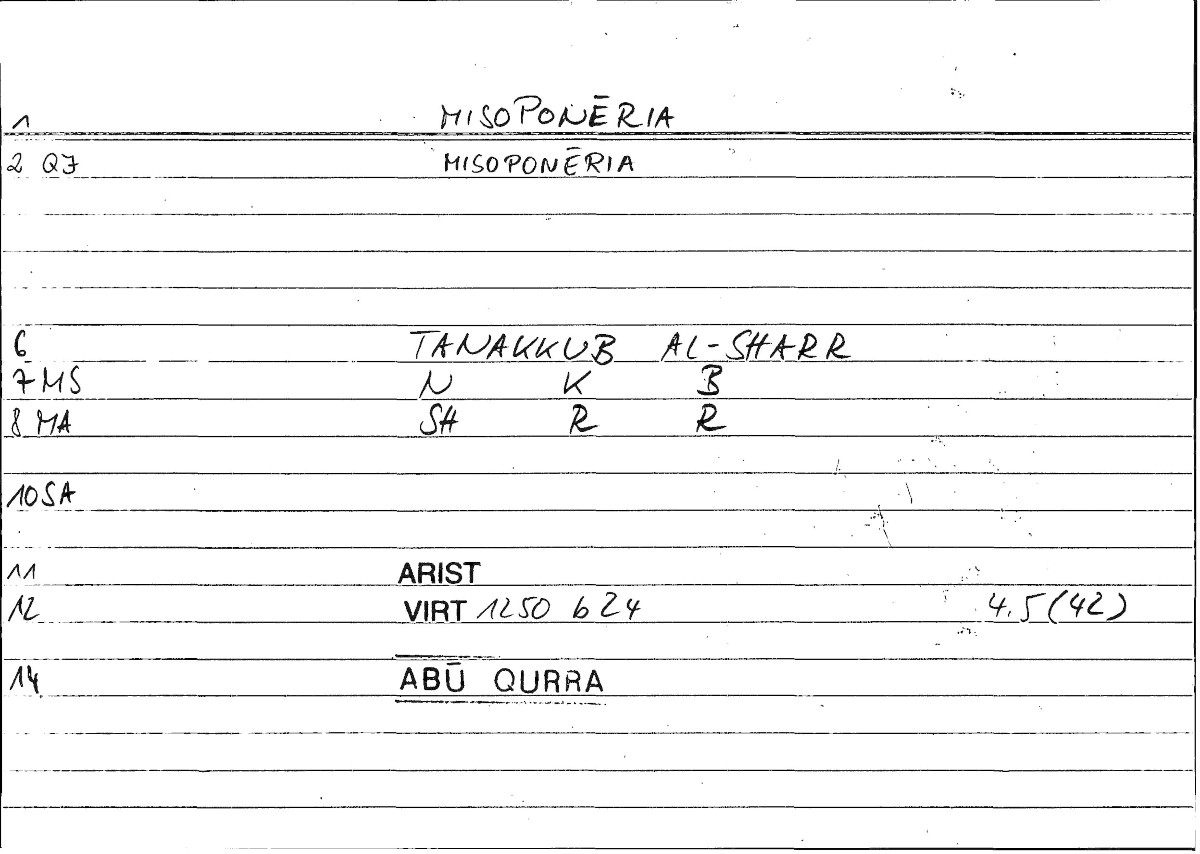 1 MISOPONĒRIA
2 QJ MISOPONĒRIA
6 TANAKKUB AL-SHARR
7 MS N K B
8 MA SH R R
10 SA
11 ARIST
12 VIRT 1250 b 24 4.5(42)
14 ABŪ QURRA